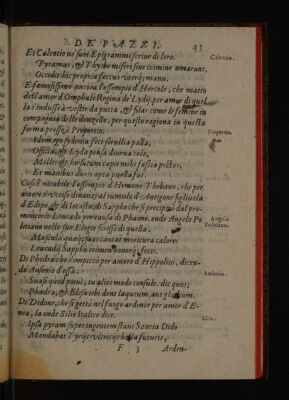 DE PAZZI. 43
Et Calentio ne' suoi Epigrammi scriue di loro. Calentio.
Pyramus, & Thysbe miseri sine crimine amarunt,
Occidit hic propria fœcux viaerq; manu.
E famosissimo ancora l'essempio d'Hercole, che matto
dell'amor d'Omphale Regina de' Lydij, per amor di quel
la s'indusse à vestire da putta, & filar come le femine in
compagnia delle donzelle, per questo ragiona in questa
forma presso à Propertio. Propertio.
Idem ego sydonia feci seruilia palla,
Officia, & Lyda pensa diurna colo,
Mollis & hirsutum cepit mihi fascia pectus,
Et manibus duris apta puella fui.
Cosi è notabile l'essempio d'Hemone Thebano, che per
amore s'vccise dinanzi al tumulo d'Antigone figliuola
d'Edipo, & di Iocasta, di Sappho che si precipitò dal pro-
montorio Leucado per causa di Phaone. onde Angelo Po Angelo Politiano.
litiano nelle sue Elegie scrisse di questa.
Mascula quæq; suæ cantat moritura calores
Leucadij Sappho crimen honorq; freti.
Di Phedra che s'impiccò per amore d'Hippolito, dicen-
do Ausonio d'essa. Ausonio.
Suasi quod potui, tu alios modo consule. dic quos;
Phædra, & Elisa tibi dent laqueum, aut gladium.
Di Didone, che si gettò nel fuogo ardente per amor d'E-
nea, la onde Silio Italico dice. Silio.
Ipsa pyram super ingentem stans Saucia Dido
Mandabat Tyrijs vltricia bella futuris,
F 3 Arden-